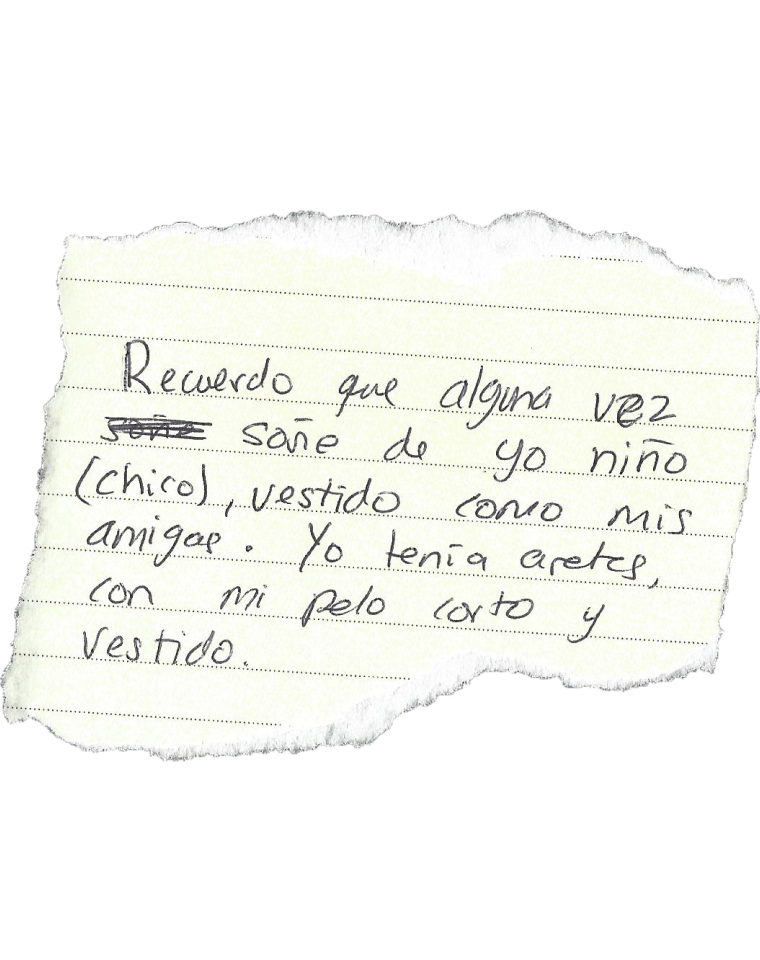 Recuerdo que alguna vez
soñe soñe de yo niño
(chico), vestido como mis
amigas. Yo tenía aretes,
con mi pelo corto y
vestido.